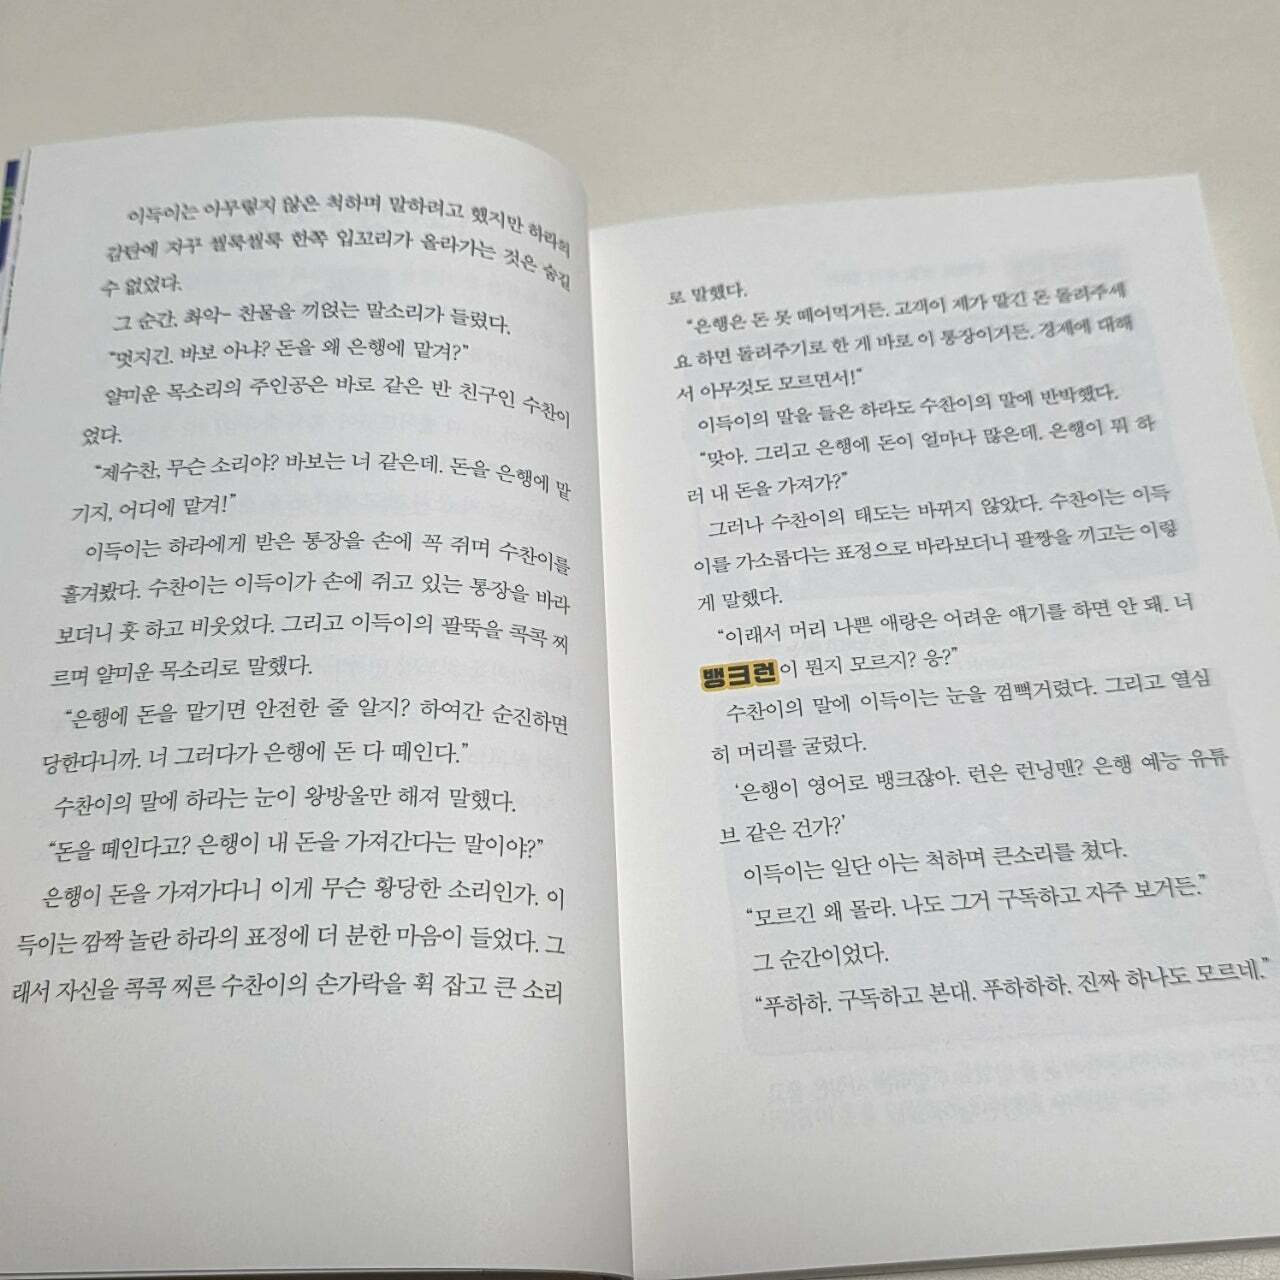 이득이는 아무렇지 않은 척하며 말하려고 했지만 하라의
감탄에 자꾸 씰룩씰룩 한쪽 입꼬리가 올라가는 것은 숨길
수 없었다.
그 순간, 촤악- 찬물을 끼얹는 말소리가 들렸다.
“멋지긴. 바보 아냐? 돈을 왜 은행에 맡겨?”
얄미운 목소리의 주인공은 바로 같은 반 친구인 수찬이
었다.
“제수찬, 무슨 소리야? 바보는 너 같은데. 돈을 은행에 맡
기지, 어디에 맡겨!”
이득이는 하라에게 받은 통장을 손에 꼭 쥐며 수찬이를
흘겨봤다. 수찬이는 이득이가 손에 쥐고 있는 통장을 바라
보더니 훗 하고 비웃었다. 그리고 이득이의 팔뚝을 콕콕 찌
르며 얄미운 목소리로 말했다.
“은행에 돈을 맡기면 안전한 줄 알지? 하여간 순진하면
당한다니까. 너 그러다가 은행에 돈 다 떼인다.”
수찬이의 말에 하라는 눈이 왕방울만 해져 말했다.
“돈을 떼인다고? 은행이 내 돈을 가져간다는 말이야?”
은행이 돈을 가져가다니 이게 무슨 황당한 소리인가. 이
득이는 깜짝 놀란 하라의 표정에 더 분한 마음이 들었다. 그
래서 자신을 콕콕 찌른 수찬이의 손가락을 휙 잡고 큰 소리
로 말했다.
“은행은 돈 못 떼어먹거든. 고객이 제가 맡긴 돈 돌려주세
요 하면 돌려주기로 한 게 바로 이 통장이거든. 경제에 대해
서 아무것도 모르면서!”
이득이의 말을 들은 하라도 수찬이의 말에 반박했다.
“맞아. 그리고 은행에 돈이 얼마나 많은데. 은행이 뭐 하
러 내 돈을 가져가?”
그러나 수찬이의 태도는 바뀌지 않았다. 수찬이는 이득
이를 가소롭다는 표정으로 바라보더니 팔짱을 끼고는 이렇
게 말했다.
“이래서 머리 나쁜 애랑은 어려운 얘기를 하면 안 돼. 너
뱅크런이 뭔지 모르지? 응?”
수찬이의 말에 이득이는 눈을 껌뻑거렸다. 그리고 열심
히 머리를 굴렸다.
‘은행이 영어로 뱅크잖아. 런은 런닝맨? 은행 예능 유튜
브 같은 건가?’
이득이는 일단 아는 척하며 큰소리를 쳤다.
“모르긴 왜 몰라. 나도 그거 구독하고 자주 보거든.”
그 순간이었다.
“푸하하. 구독하고 본대. 푸하하하. 진짜 하나도 모르네.”